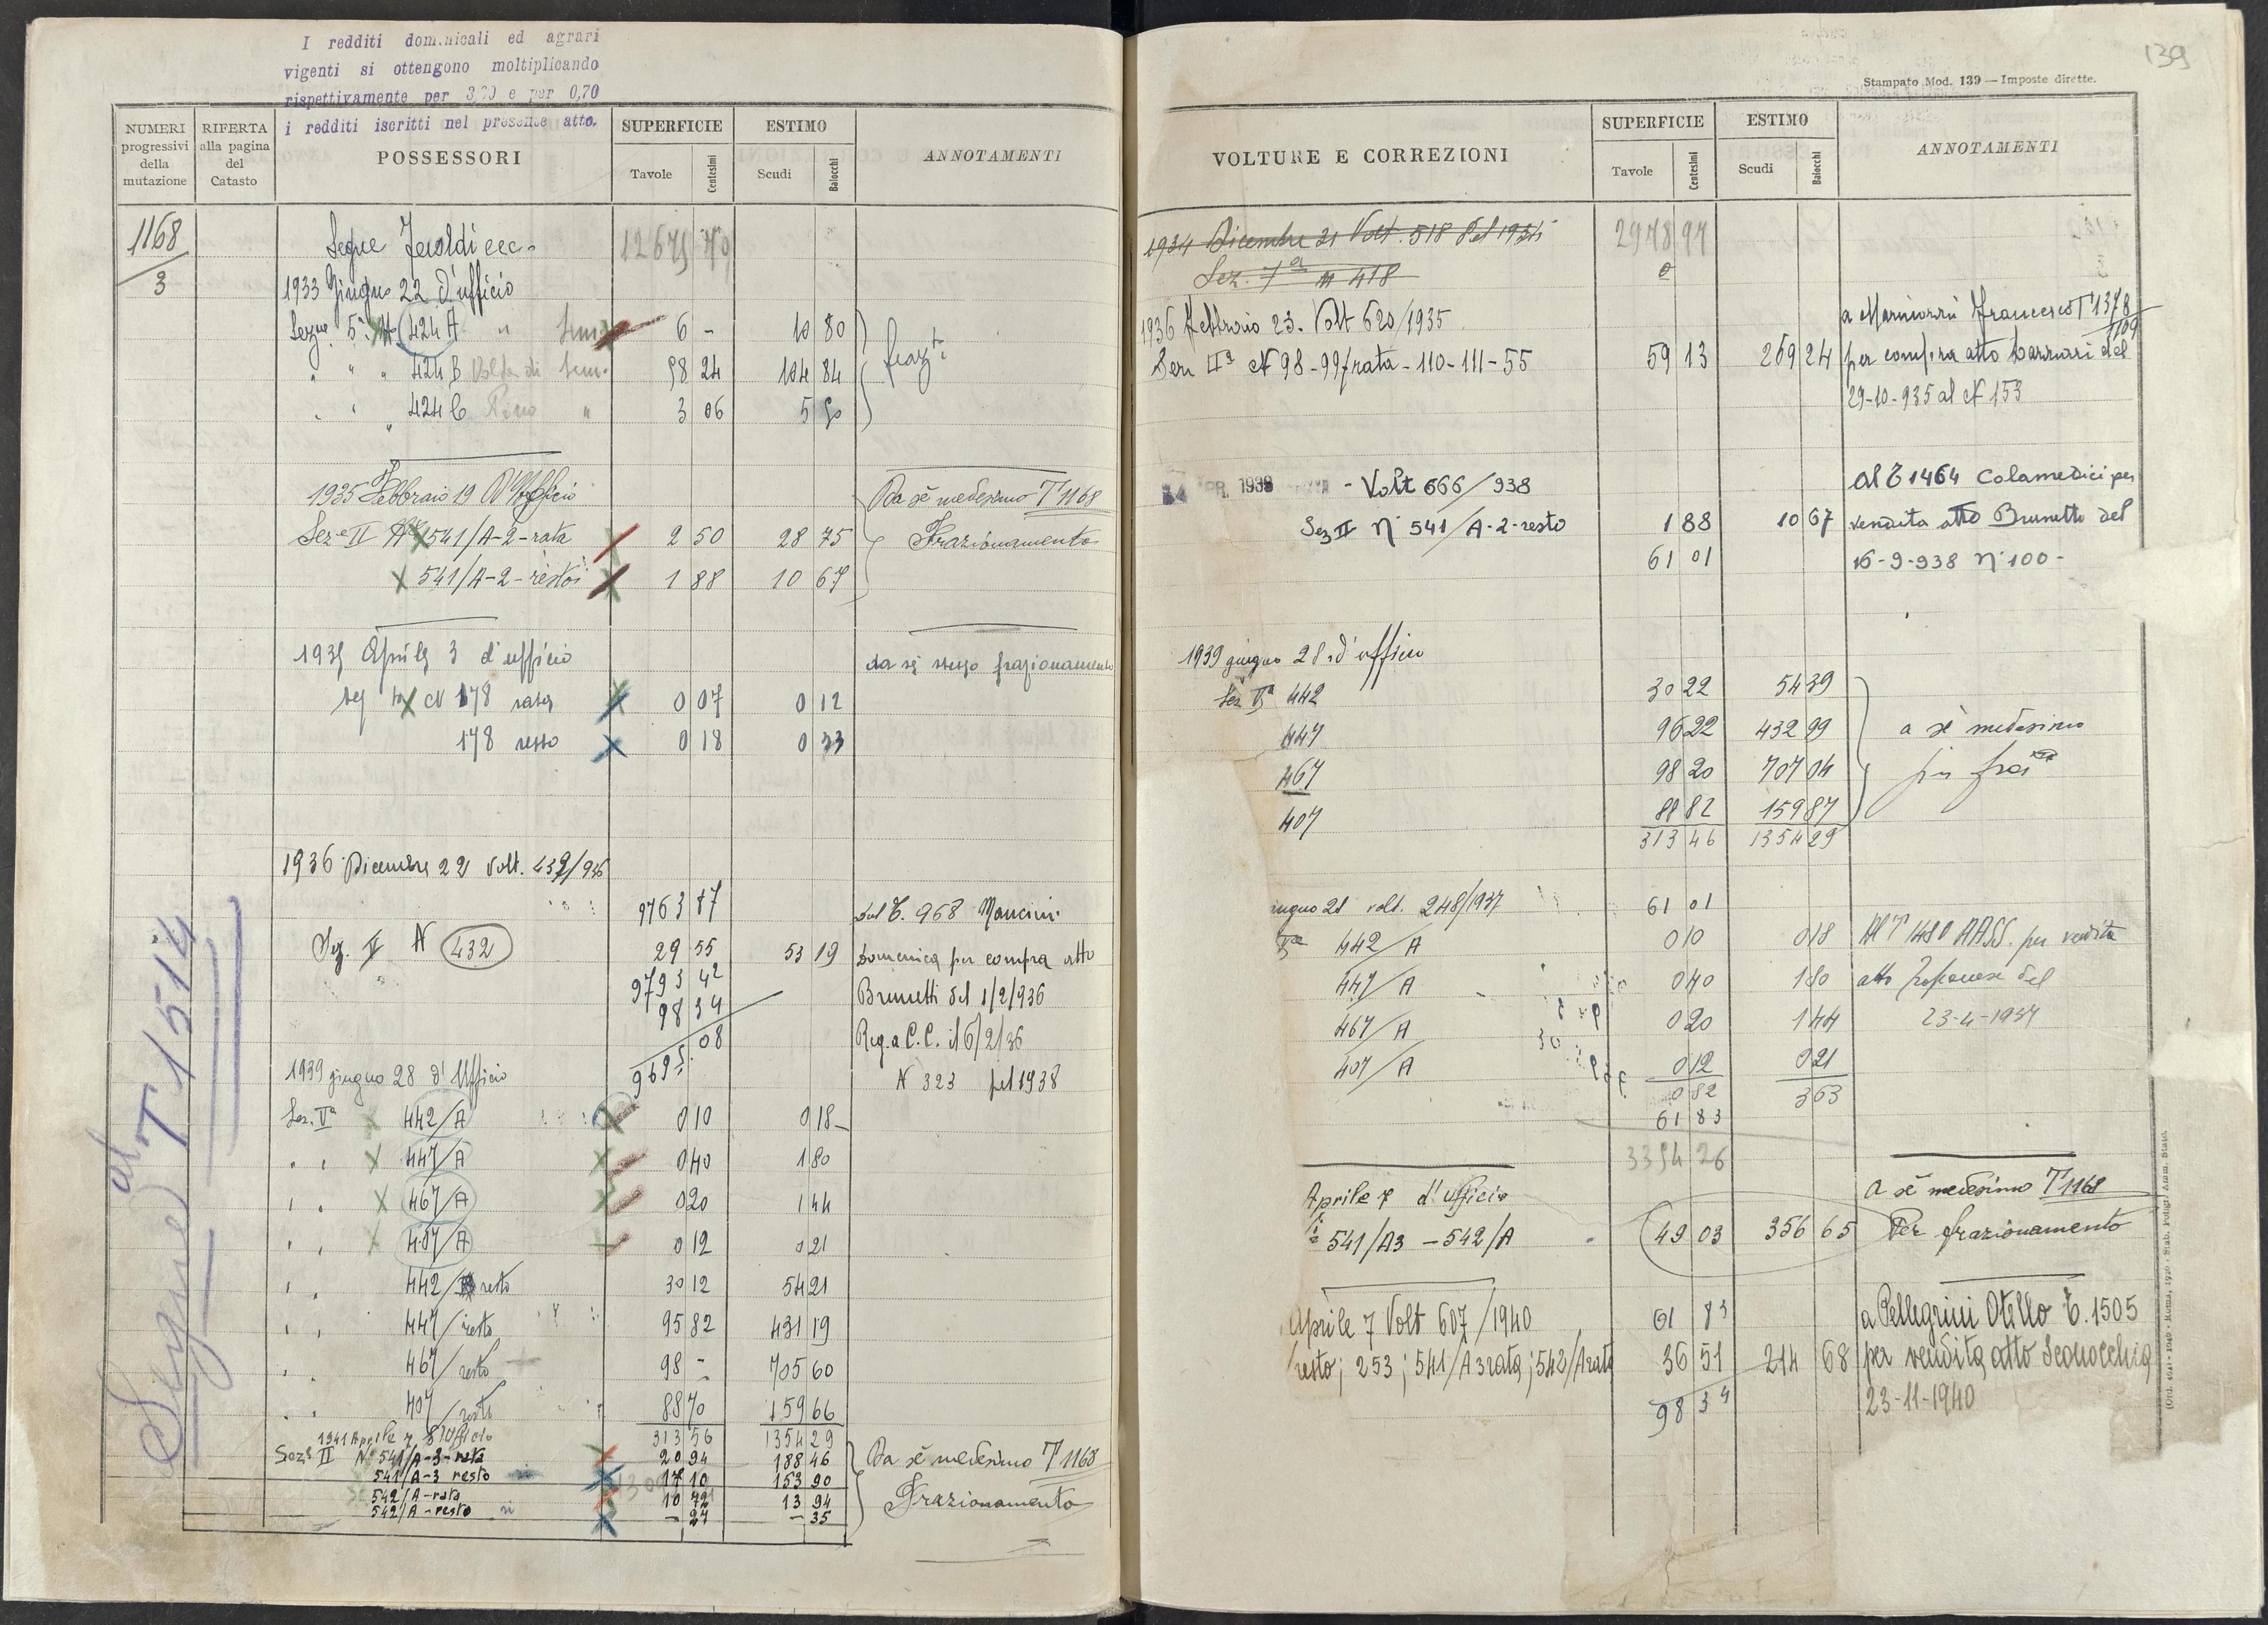 I redditi dominicali ed agrari
vigenti si ottengono moltiplicando
rispettivamente per e per 0,70
i redditi iscritti nel presente atto.
NUMERI progressivi della mutazione
RIFERTA alla pagina del Catasto
POSSESSORI
SUPERFICIE
Tavole Centesimi
ESTIMO
Scudi Baiocchi
ANNOTAMENTI
1168
3
Segue ecc.
1933 Giugno 22 d'ufficio
Sez. 5ª 424 A " Sem. 6 - 10 80
" " " 424 B Sem. 58 24 104 84
" " " 424 C " 3 06 5 50
fraz.ti
1935 Febbraio 19 D'Ufficio Da sè medesimo T 1168
Sez.e II Nº 541/A-2-rata 2 50 28 75 Frazionamento
541/A-2-resto 1 88 10 67
1935 Aprile 3 d'ufficio da sè stesso frazionamento
N 178 rata 0 07 0 12
178 resto 0 18 0 33
1936 Dicembre 22 Volt. 432/936
9763 87 dal T. 968 Mancini
Sez. V N 432 29 55 53 19 Domenica per compra atto
9793 42 Brunetti del 1/2/936
98 34
9695 08 Reg. a C.C. il 6/2/36
N 323 del 1938
1939 giugno 28 d'Ufficio
Sez. Vª 442/A 0 10 0 18
" " 447/A 0 40 1 80
" " 467/A 0 20 1 44
" " 407/A 0 12 0 21
" " 442/ resto 30 12 54 21
" " 447/resto 95 82 431 19
" 467/resto 98 - 705 60
" " 407/resto 88 70 159 66
313 56 1354 29
1941 Aprile 7 d'Ufficio
Sez.e II Nº 541/A-3-rata 20 94 188 46 Da sè medesimo T 1168
541/A-3 resto 17 10 153 90
542/A-rata 10 72 13 94 Frazionamento
542/A-resto - 27 - 35
Segue al T 1514
139
Stampato Mod. 139 — Imposte dirette.
VOLTURE E CORREZIONI
SUPERFICIE
Tavole Centesimi
ESTIMO
Scudi Baiocchi
ANNOTAMENTI
1934 Dicembre 31 Volt. 518 del 1934 2978 97
Sez. 7ª n 418
1936 Febbraio 23. Volt 620/1935 a Francesco T 1378
1109
Sez. IIª N 98-99/rata-110-111-55 59 13 269 24 per compra atto del
29-10-935 al N 153
- Volt 666/938 al T 1464 Colamedici per
Sez II N 541/A-2-resto 1 88 10 67 vendita atto Brunetto del
61 01 16-9-938 N 100-
1939 giugno 28 d'ufficio
Sez Vª 442 30 22 54 39
447 96 22 432 99 a sè medesimo
467 98 20 707 04 per
407 88 82 159 87
313 46 1354 29
21 volt. 248/1937 61 01
442/A 0 10 0 18 Al T 1480 AASS. per vendita
447/A 0 40 1 80 atto del
467/A 0 20 1 44 23-4-1937
407/A 0 12 0 21
0 82 3 63
61 83
3354 26
Aprile 7 d'Ufficio A sè medesimo T 1168
541/A3 - 542/A 49 03 356 65 Per frazionamento
Aprile 7 Volt 607/1940 61 83 a Pellegrini Otello T. 1505
resto; 253; 541/A3rata; 542/Arata 36 51 214 68 per vendita atto Sconocchia
98 34 23-11-1940